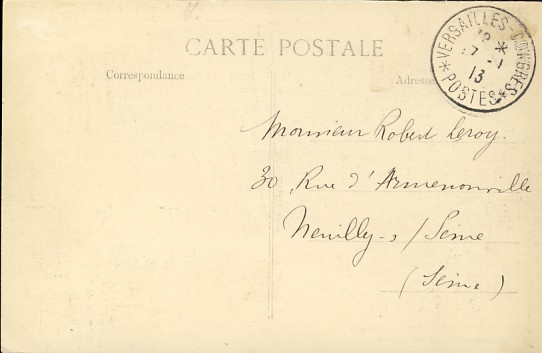 CARTE POSTALE
Correspondance
Adresse
*VERSAILLES-CONGRES*
POSTES
12 *
17 -1
13
Monsieur Robert Leroy.
30, Rue d'Armenonville
Neuilly-s/Seine
(Seine)